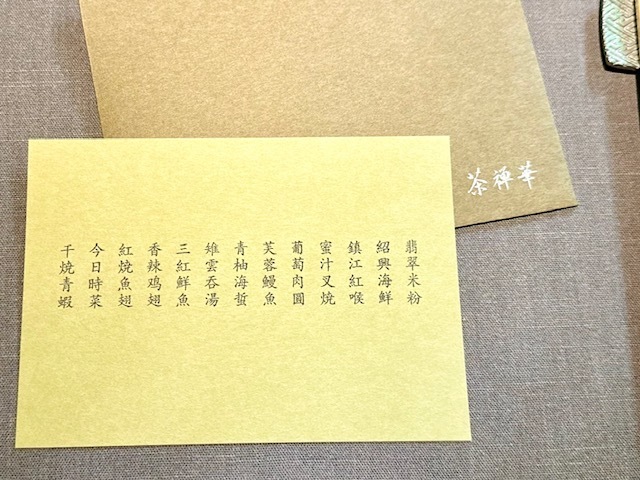 茶禅華
翡翠米粉
紹興海鮮
鎮江紅喉
蜜汁叉焼
葡萄肉圓
芙蓉鰻魚
青柚海蜇
雉雲呑湯
三紅鮮魚
香辣鸡翅
紅焼魚翅
今日時菜
干焼青蝦